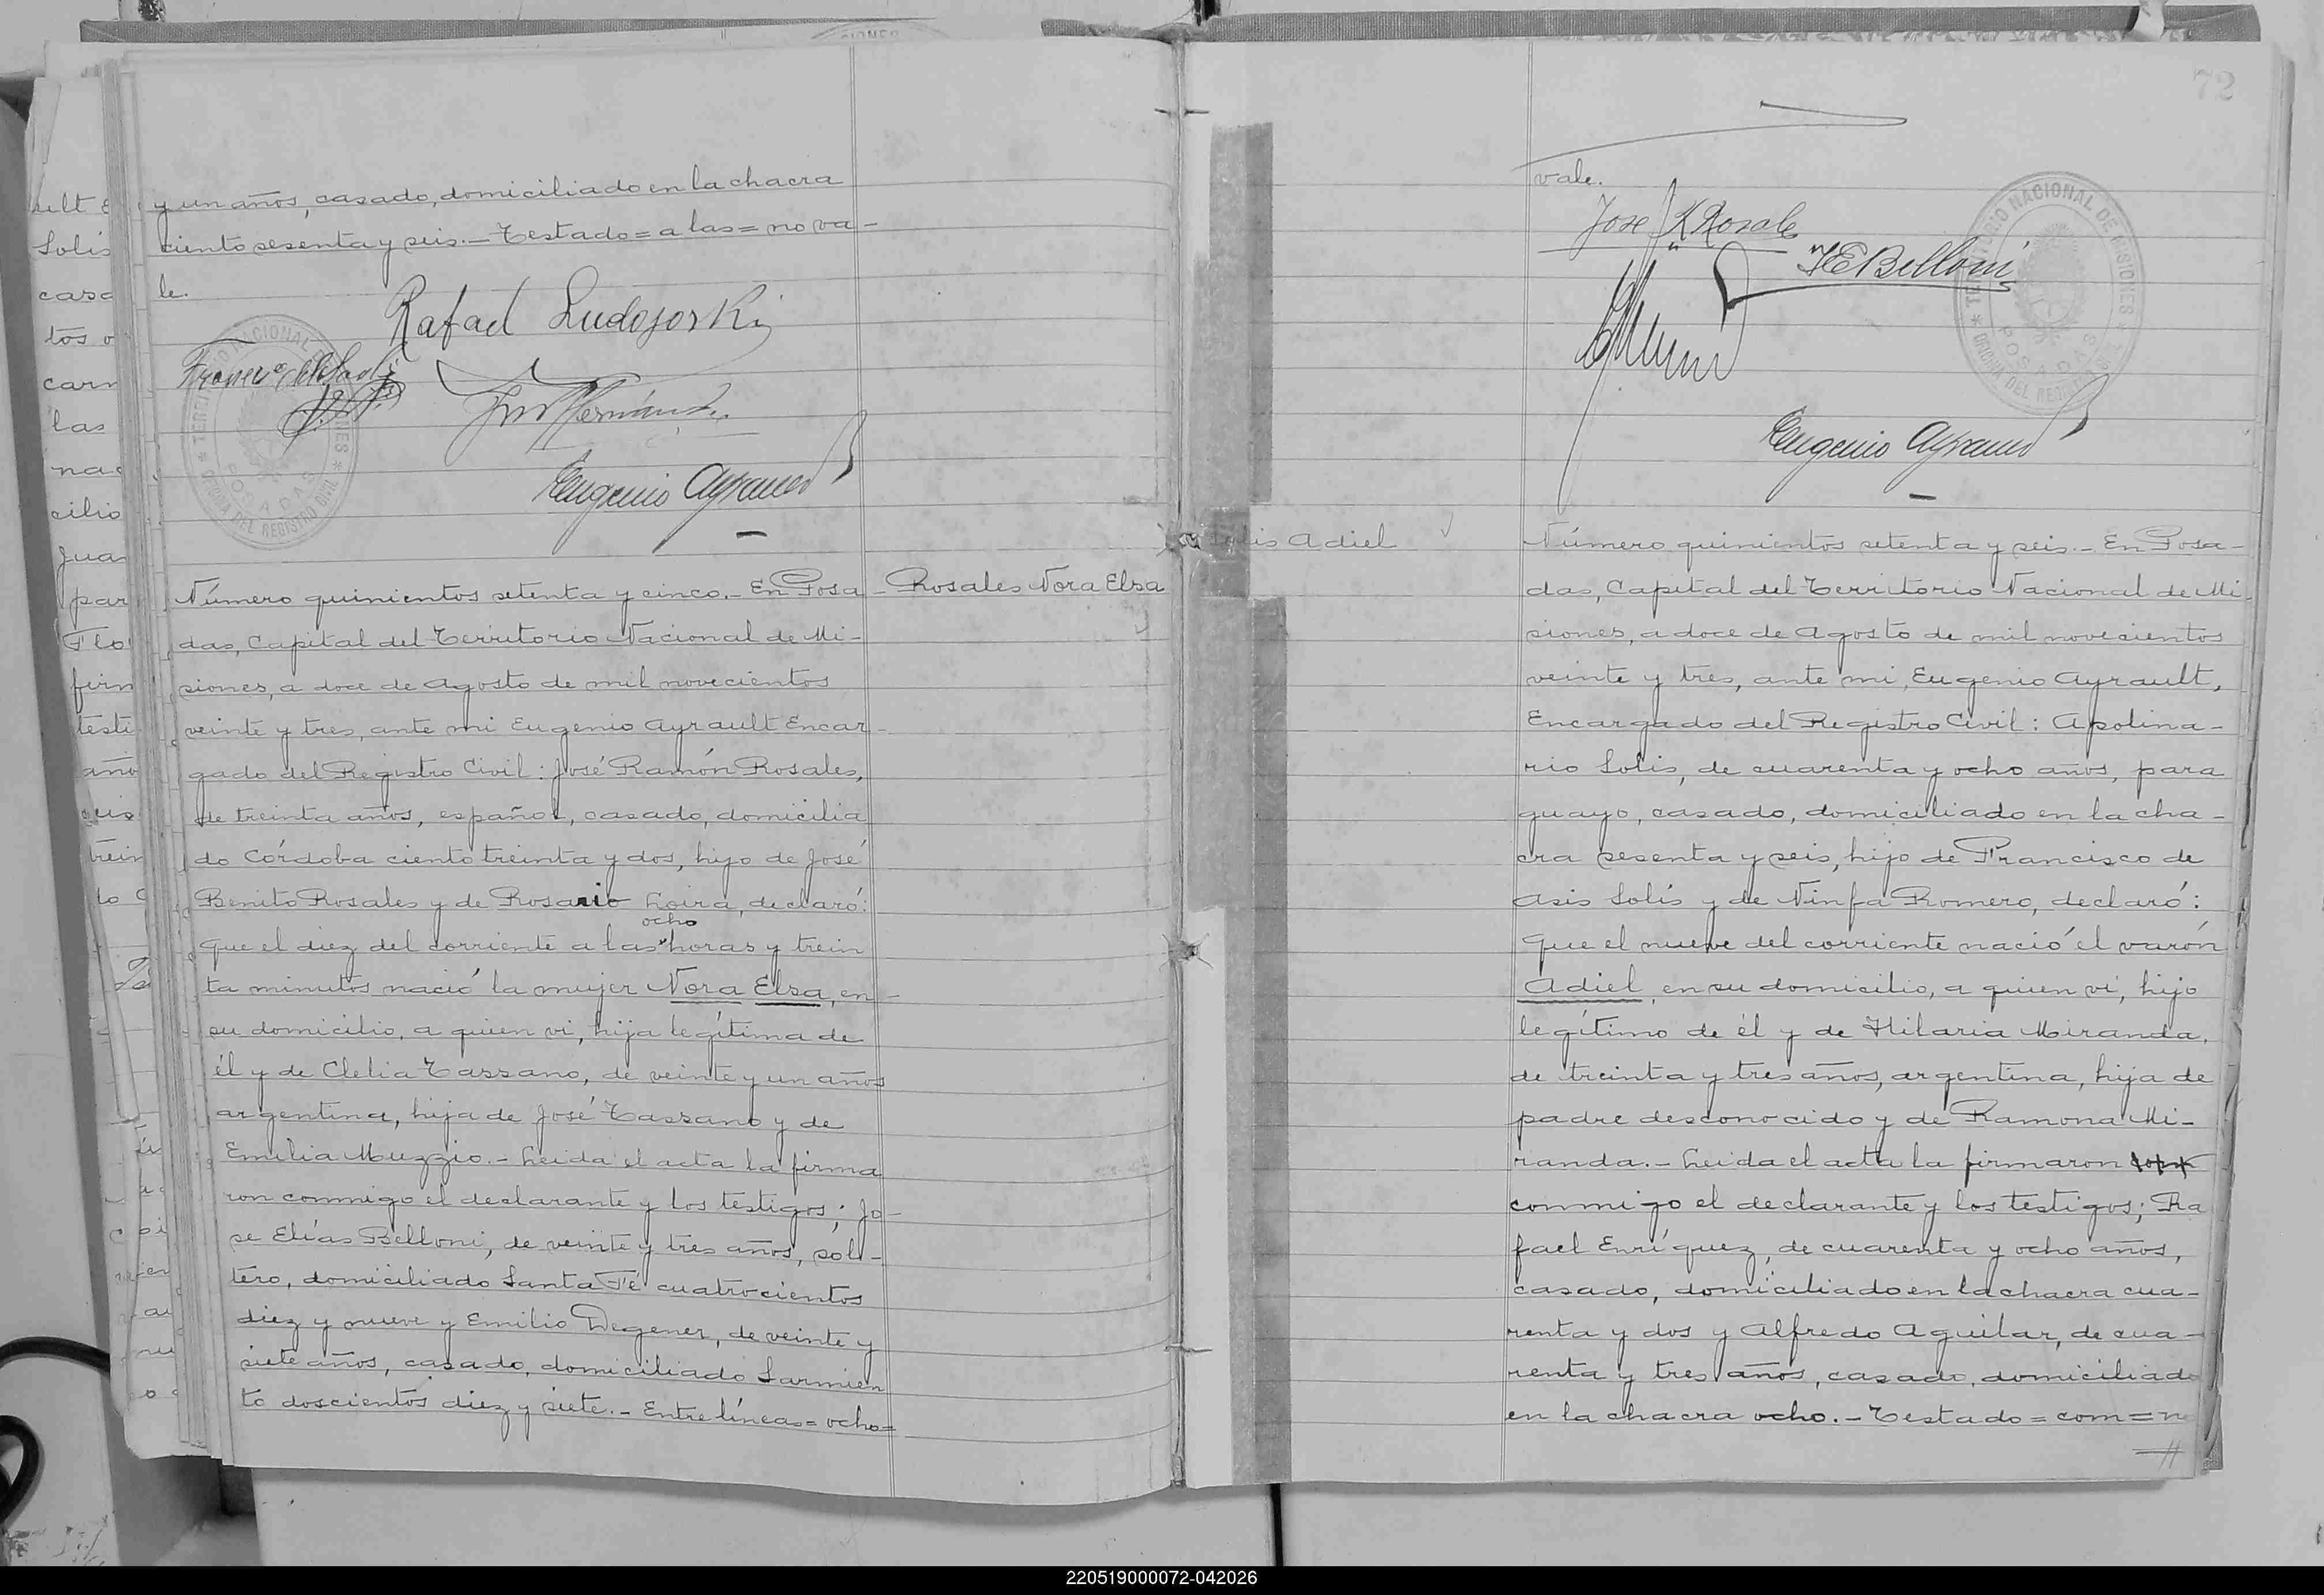 y un años, casado, domiciliado en la chacra
ciento sesenta y seis.- Testado = a las = no va-
le.
Rafael Ludojoski
Eugenio Ayrault
TERRITORIO NACIONAL DE MISIONES
OFICINA DEL REGISTRO CIVIL
POSADAS
Número quinientos setenta y cinco.- En Posa-
Rosales Nora Elsa
das, Capital del Territorio Nacional de Mi-
siones, a doce de Agosto de mil novecientos
veinte y tres, ante mi Eugenio Ayrault Encar-
gado del Registro Civil: José Ramón Rosales,
de treinta años, español, casado, domicilia
do Córdoba ciento treinta y dos, hijo de José
Benito Rosales y de Rosario Loira, declaró:
ocho
Que el diez del corriente a las horas y trein
ta minutos nació la mujer Nora Elsa, en-
su domicilio, a quien vi, hija legítima de
él y de Clelia Tassano, de veinte y un años
argentina, hija de José Tassano y de
Emilia Muzzio.- Leida el acta la firma
ron conmigo el declarante y los testigos; Jo-
se Elías Belloni, de veinte y tres años, sol-
tero, domiciliado Santa Fé cuatrocientos
diez y nueve y Emilio Degener, de veinte y
siete años, casado, domiciliado Sarmien
to doscientos diez y siete.- Entre líneas = ocho =
72
vale.
Jose R Rosales
JE Belloni
Eugenio Ayrault
TERRITORIO NACIONAL DE MISIONES
OFICINA DEL REGISTRO CIVIL
POSADAS
Solis Adiel
Número quinientos setenta y seis.- En Posa-
das, Capital del Territorio Nacional de Mi-
siones, a doce de Agosto de mil novecientos
veinte y tres, ante mi, Eugenio Ayrault,
Encargado del Registro Civil: Apolina-
rio Solis, de cuarenta y ocho años, para
guayo, casado, domiciliado en la cha-
cra sesenta y seis, hijo de Francisco de
Asis Solís y de Ninfa Romero, declaró:
Que el nueve del corriente nació el varón
Adiel, en su domicilio, a quien vi, hijo
legítimo de él y de Hilaria Miranda,
de treinta y tres años, argentina, hija de
padre desconocido y de Ramona Mi-
randa.- Leida el acta la firmaron com
conmigo el declarante y los testigos; Ra
fael Enríquez, de cuarenta y ocho años,
casado, domiciliado en la chacra cua-
renta y dos y Alfredo Aguilar, de cua-
renta y tres años, casado, domiciliado
en la chacra ocho.- Testado = com = n
220519000072-042026